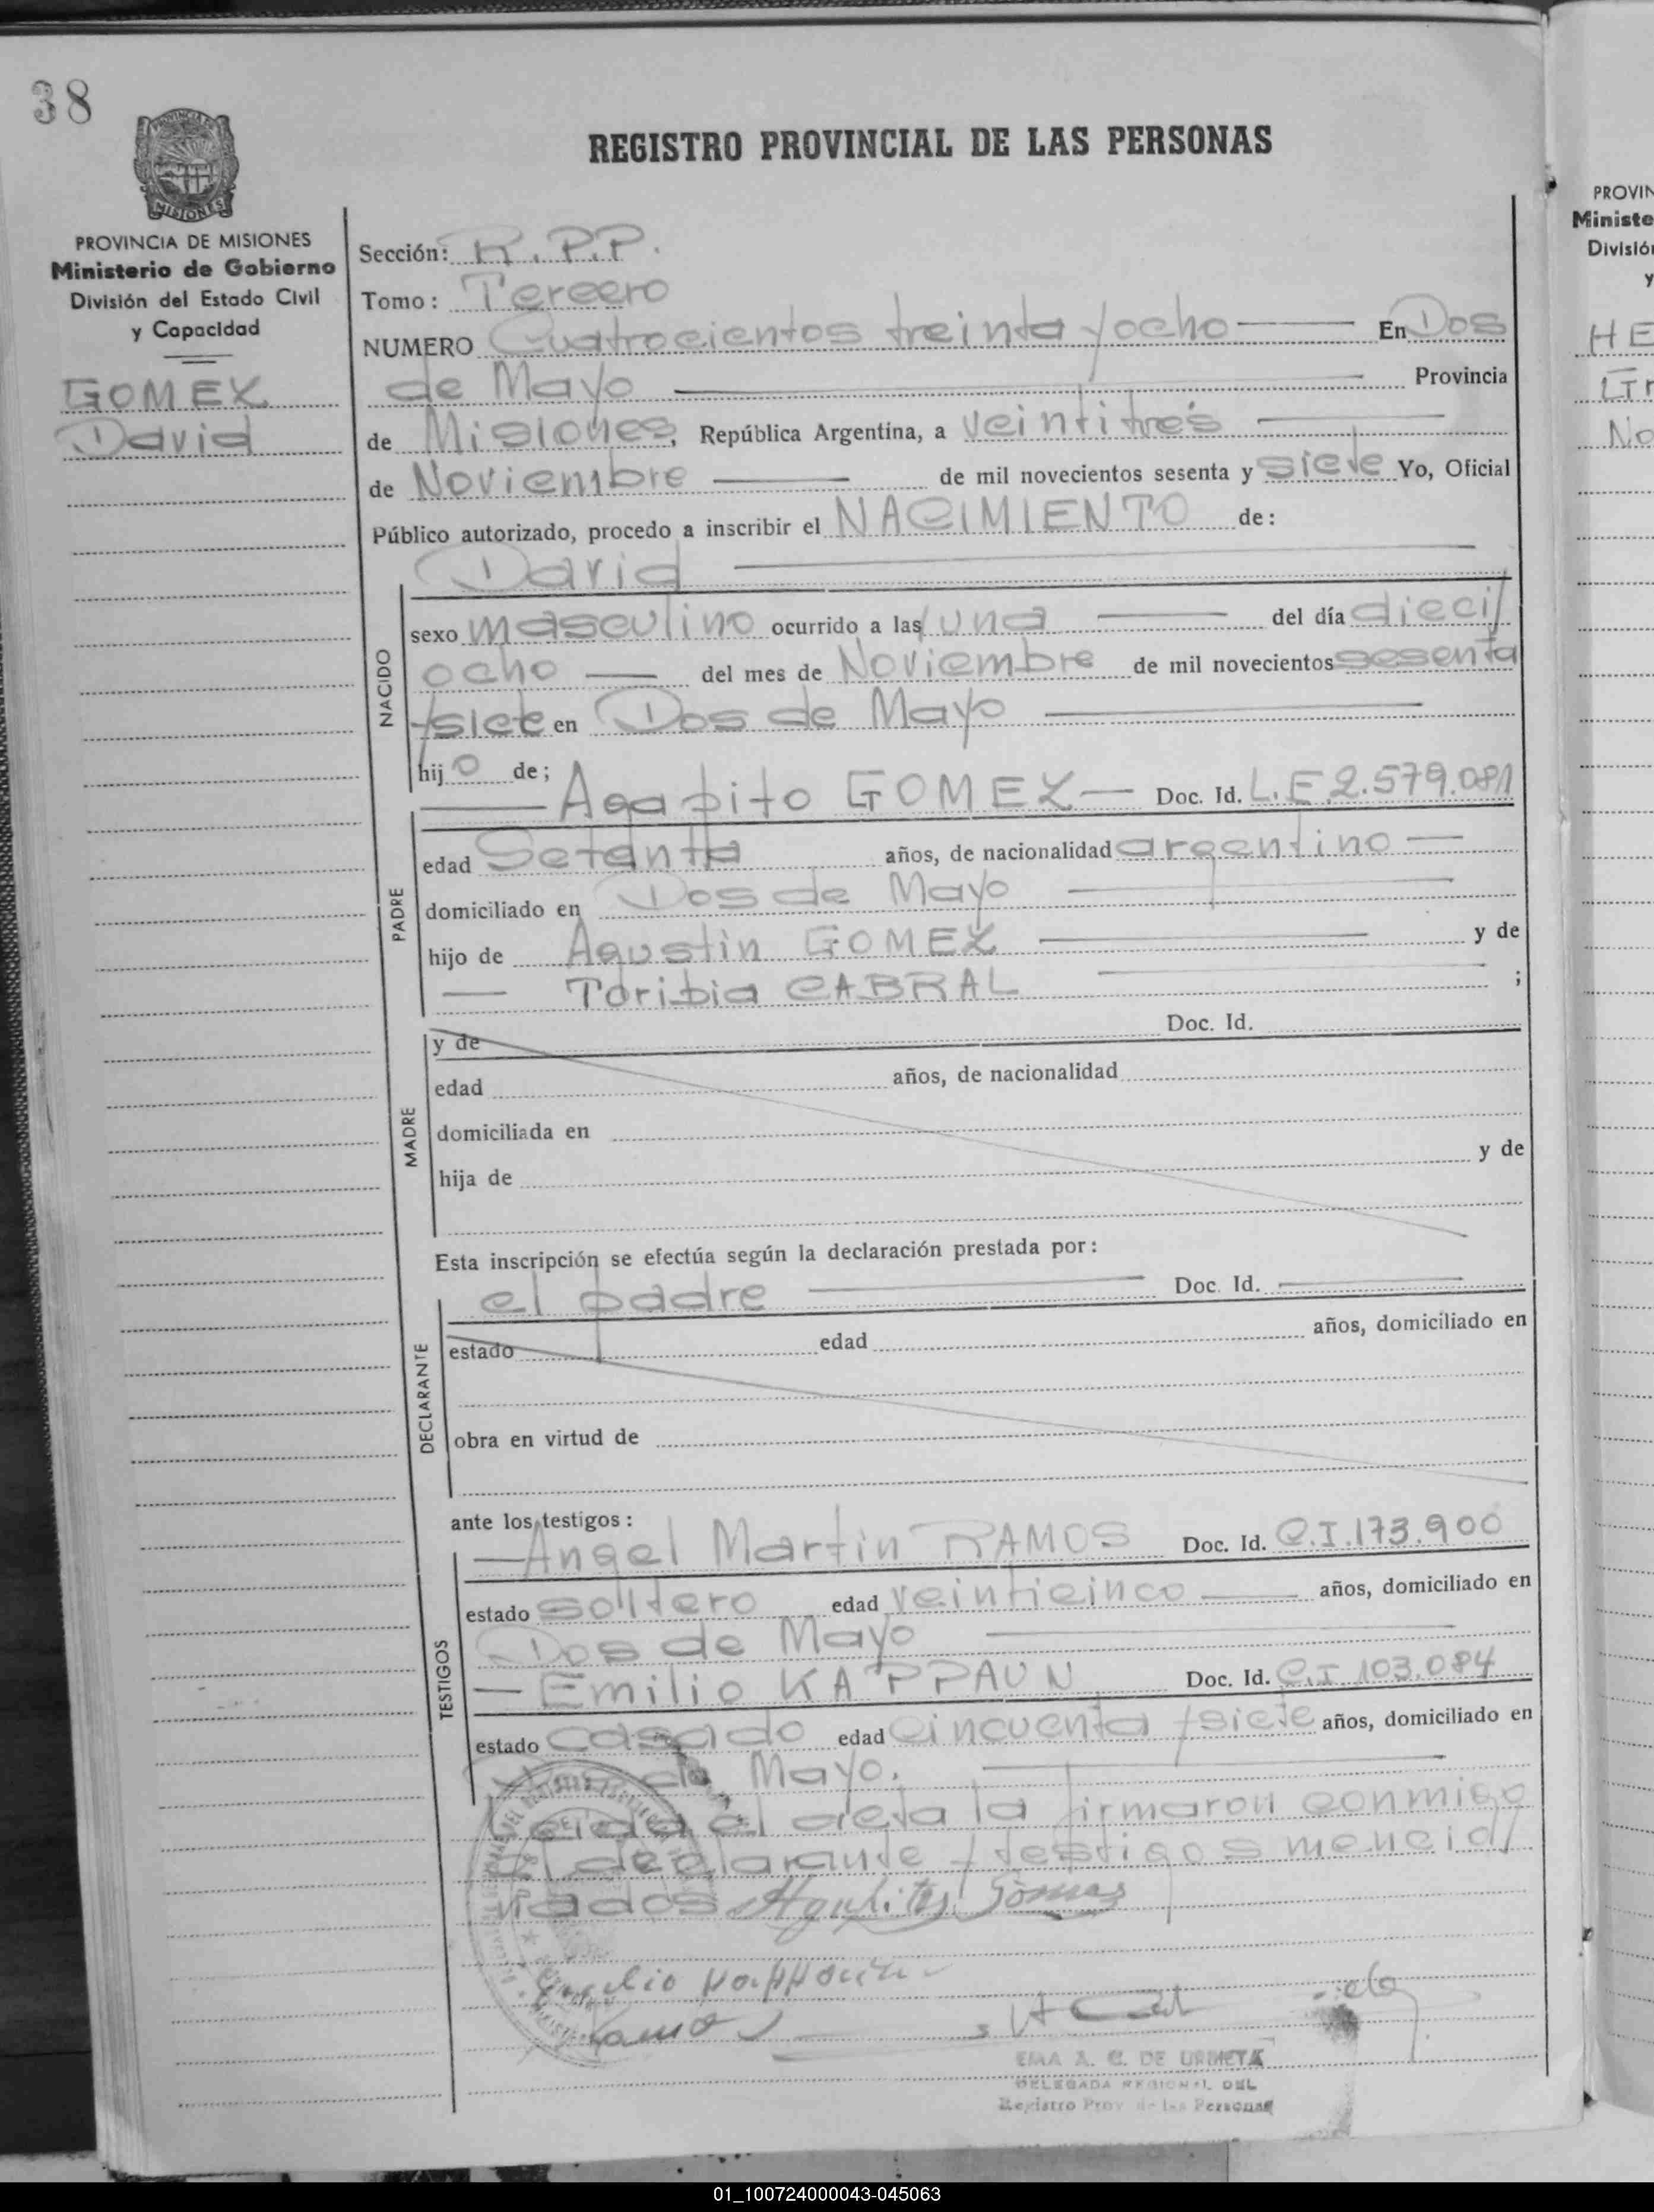 38
REGISTRO PROVINCIAL DE LAS PERSONAS
PROVINCIA DE
MISIONES
PROVINCIA DE MISIONES
Ministerio de Gobierno
División del Estado Civil
y Capacidad
GOMEZ
David
Sección: R.P.P.
Tomo: Tercero
NUMERO Cuatrocientos treinta y ocho En Dos
de Mayo Provincia
de Misiones, República Argentina, a veintitrés
de Noviembre de mil novecientos sesenta y siete Yo, Oficial
Público autorizado, procedo a inscribir el NACIMIENTO de:
David
NACIDO
sexo masculino ocurrido a las una del día dieci/
ocho del mes de Noviembre de mil novecientos sesenta
y siete en Dos de Mayo
hijo de;
Agapito GOMEZ Doc. Id. L.E.2.579.081
PADRE
edad Setenta años, de nacionalidad argentino
domiciliado en Dos de Mayo
hijo de Agustin GOMEZ y de
Toribia CABRAL ;
MADRE
y de Doc. Id.
edad años, de nacionalidad
domiciliada en
hija de y de
Esta inscripción se efectúa según la declaración prestada por:
el padre Doc. Id.
DECLARANTE
estado edad años, domiciliado en
obra en virtud de
ante los testigos:
Angel Martin RAMOS Doc. Id. C.I.173.900
TESTIGOS
estado soltero edad veinticinco años, domiciliado en
Dos de Mayo
Emilio KAPPAUN Doc. Id. C.I 103.084
estado casado edad cincuenta y siete años, domiciliado en
de Mayo.
Leida el acta la firmaron conmigo
el declarante y testigos mencio/
nados Gomez
Emilio Kappaun
Ramos
EMA A. C. DE URMETA
DELEGADA REGIONAL DEL
Registro Prov de las Personas
PROVIN
Ministe
Divisió
y
HE
Gr
No
01_100724000043-045063